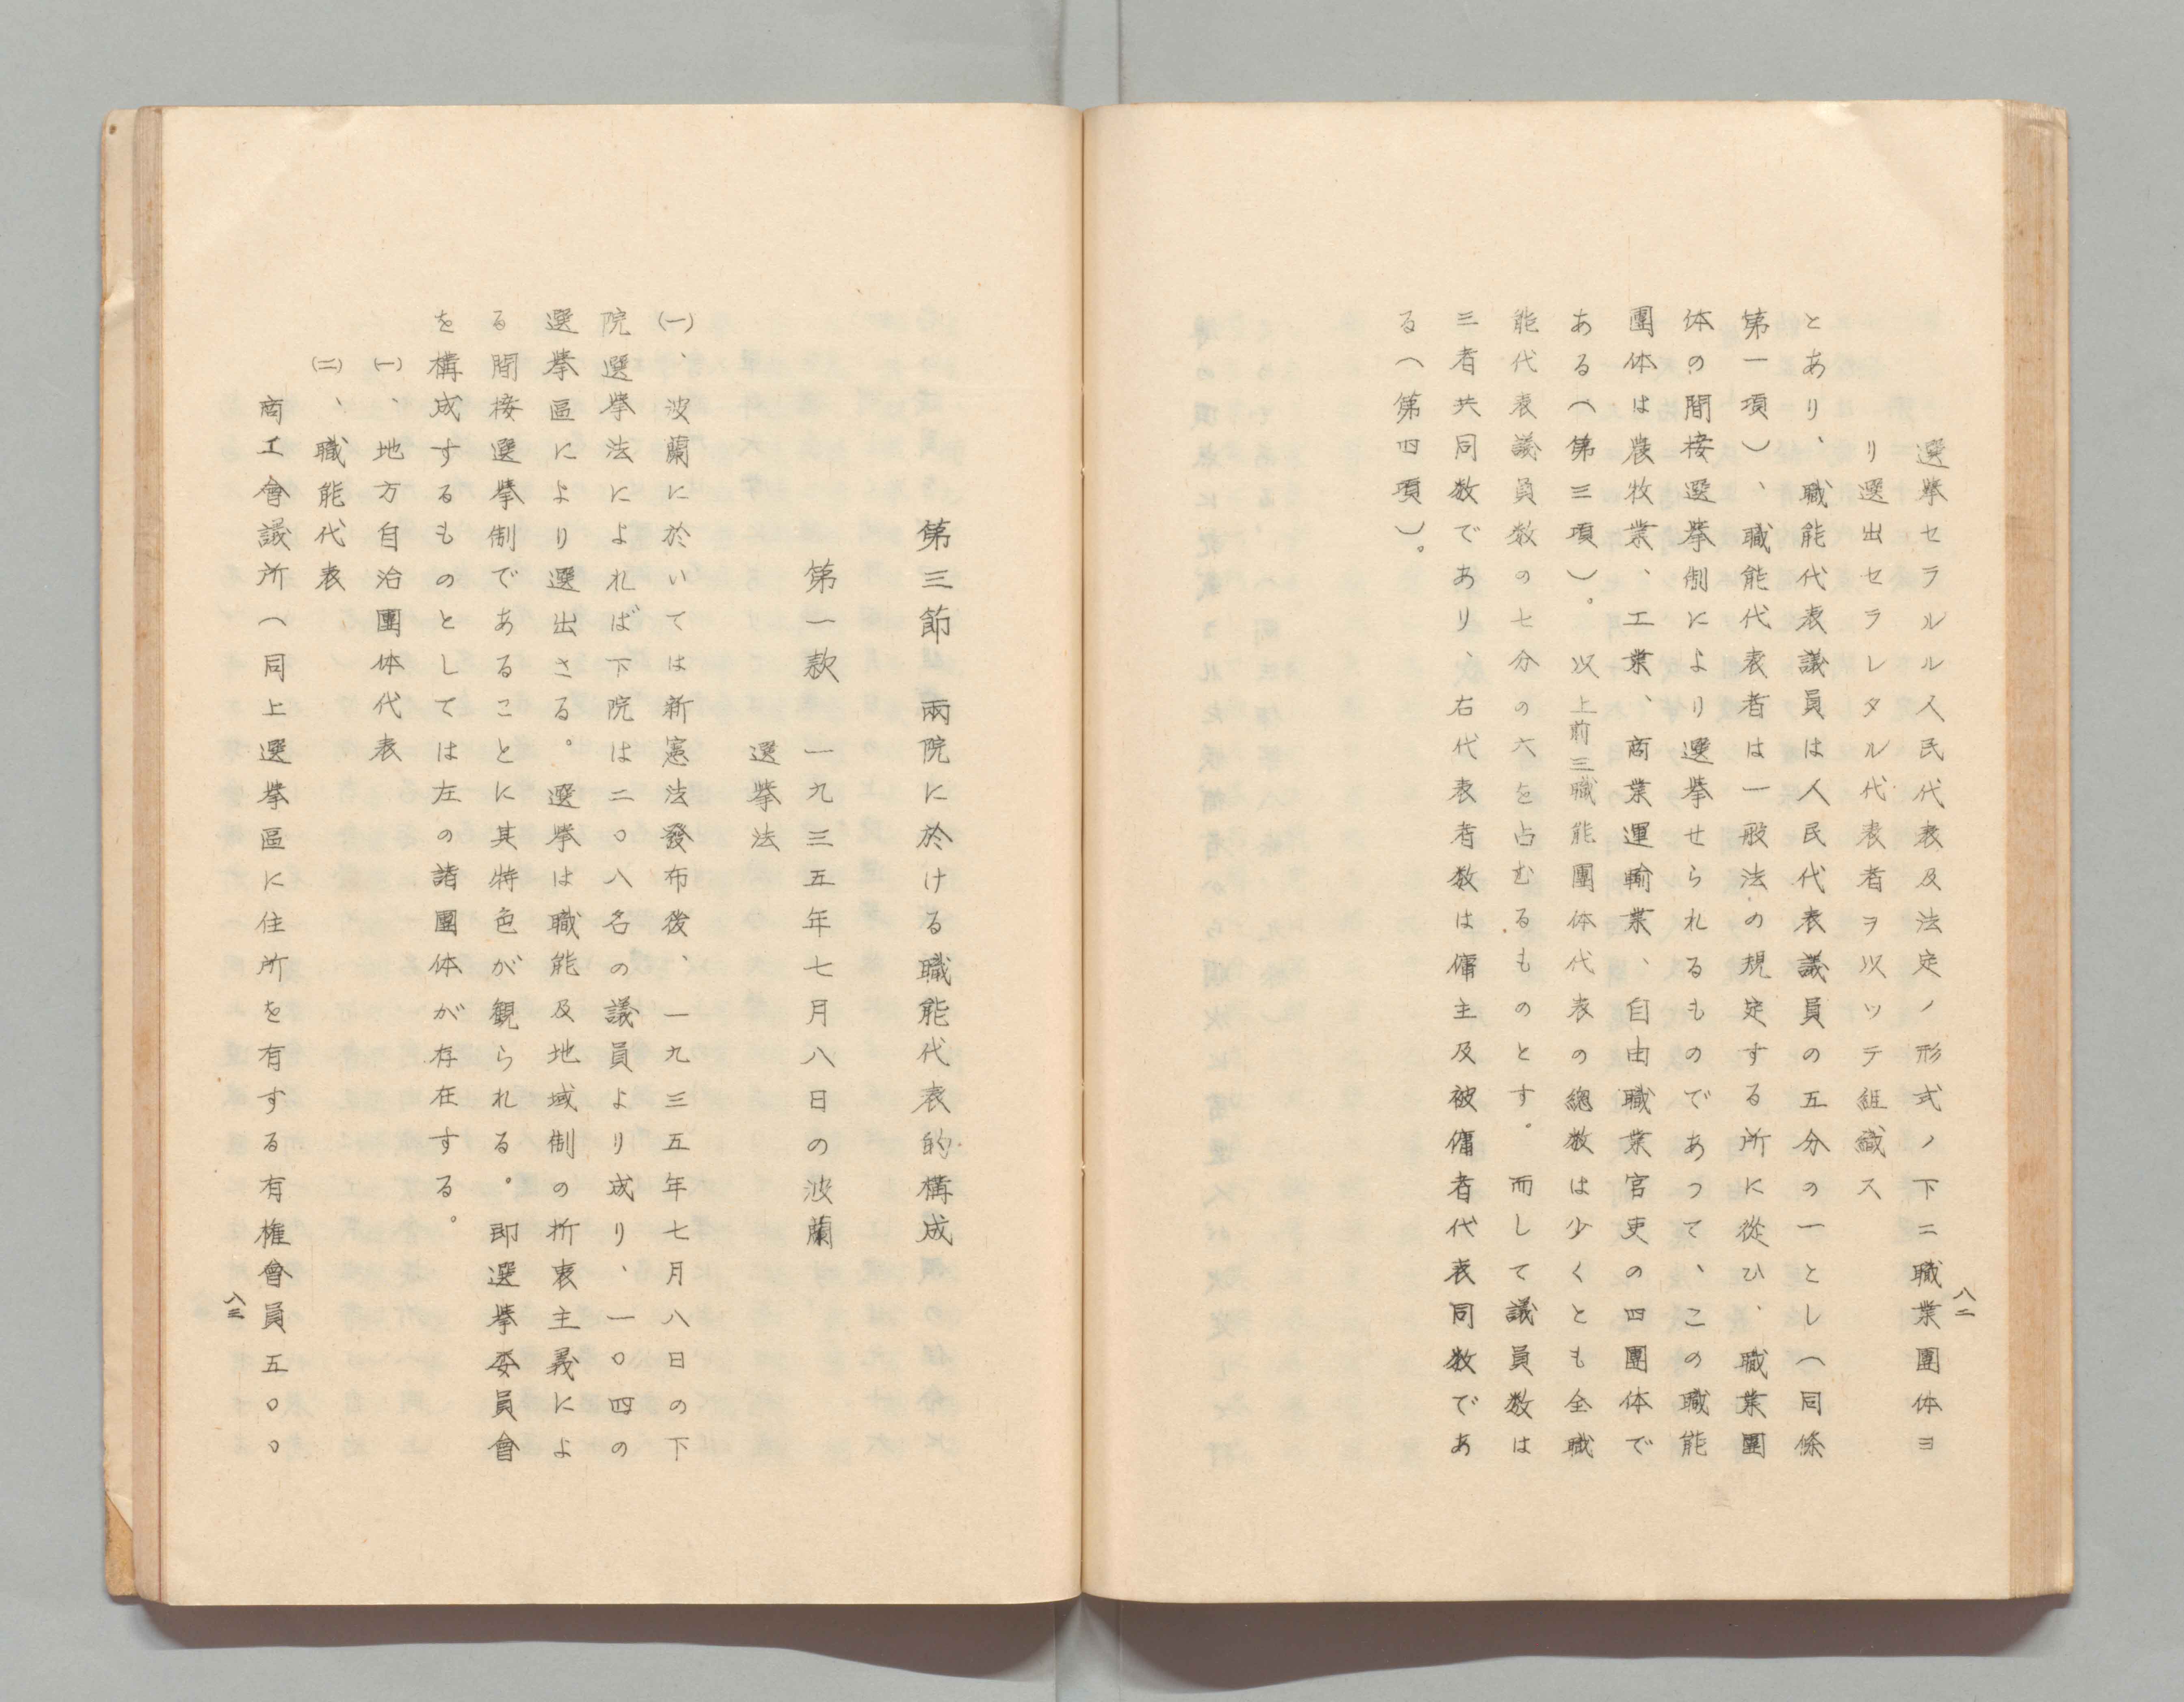 選挙セラルル人民代表及法定ノ形式ノ下ニ職業團体ヨ
リ選出セラレタル代表者ヲ以ッテ組織ス
とあり、職能代表議員は人民代表議員の五分の一とし（同條
第一項）、職能代表者は一般法の規定する所に從ひ、職業團
体の間接選挙制により選挙せられるものであって、この職能
團体は農牧業、工業、商業運輸業、自由職業官吏の四團体で
ある（第三項）。以上前三職能團体代表の總数は少くとも全職
能代表議員数の七分の六を占むるものとす。而して議員数は
三者共同数であり、右代表者数は傭主及被傭者代表同数であ
る（第四項）。
八二
第三節　兩院に於ける職能代表的構成
第一款　一九三五年七月八日の波蘭
選挙法
㈠、波蘭に於いては新憲法發布後、一九三五年七月八日の下
院選挙法によれば下院は二〇八名の議員より成り、一〇四の
選挙區により選出さる。選挙は職能及地域制の折衷主義によ
る間接選挙制であることに其特色が観られる。即選挙委員會
を構成するものとしては左の諸團体が存在する。
㈠、地方自治團体代表
㈡、職能代表
商工會議所（同上選挙區に住所を有する有権會員五〇〇
八三